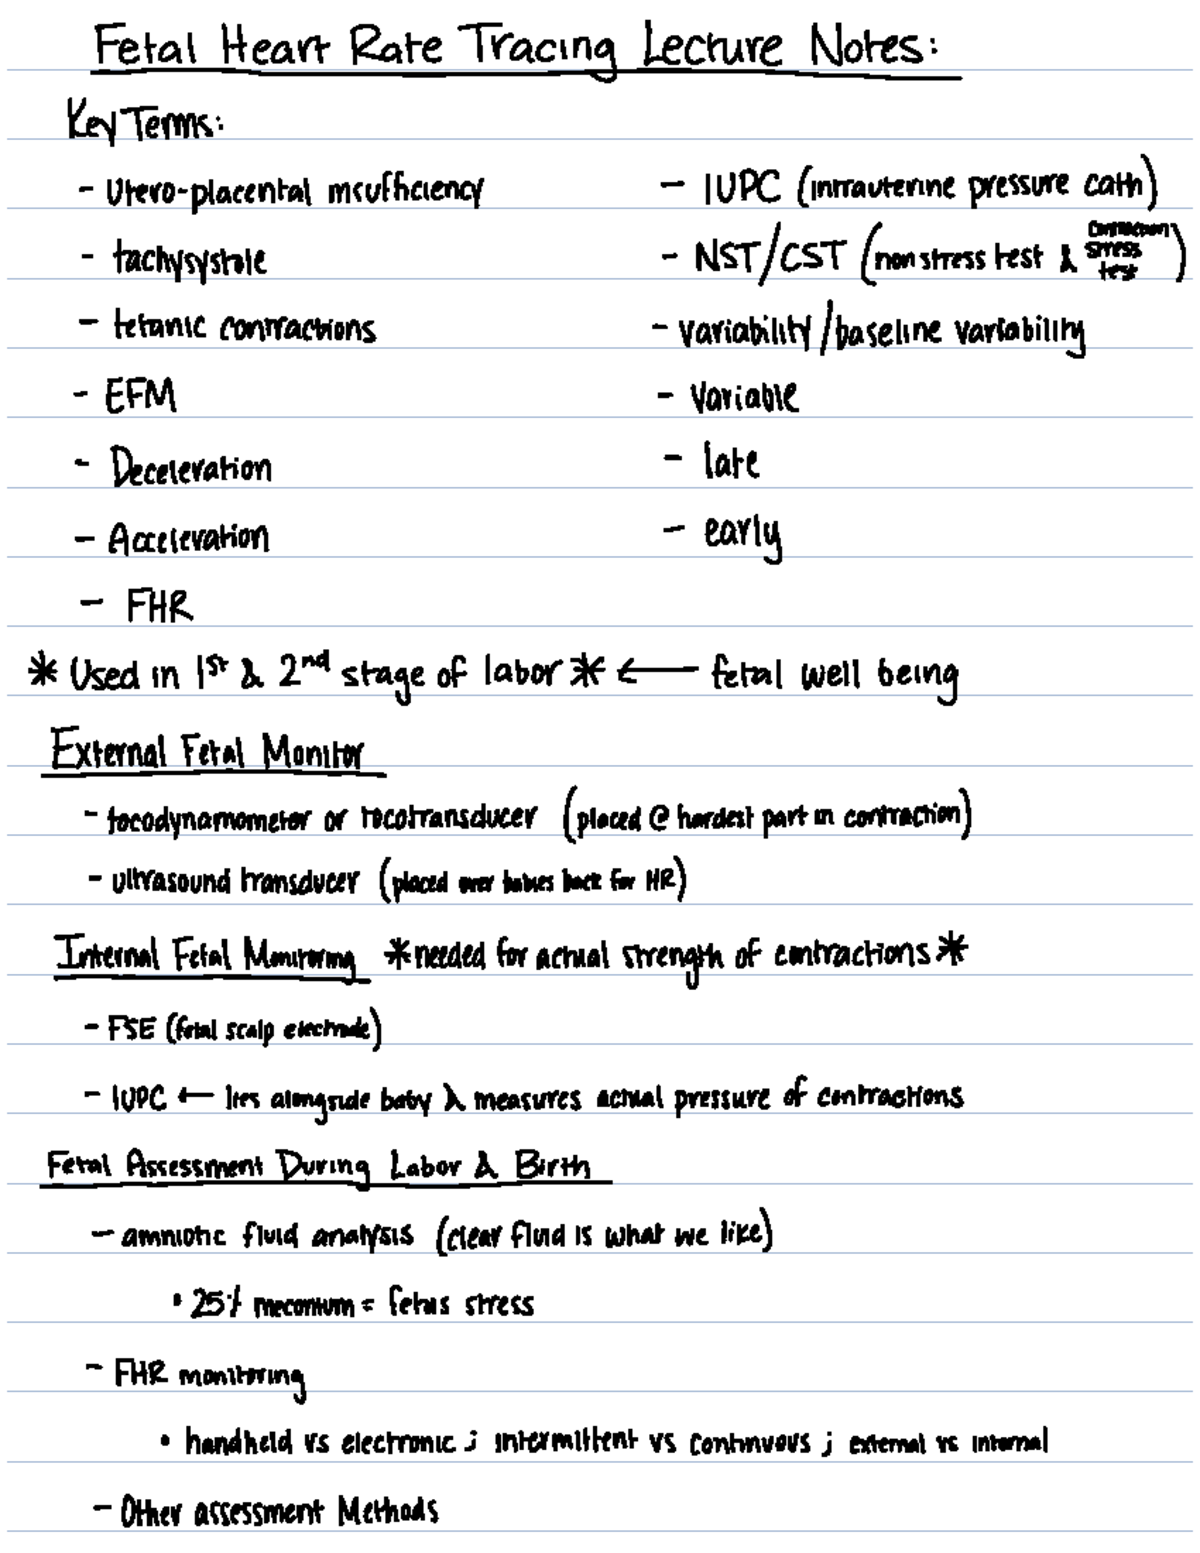 Fetal Heart Rate Tracing Lecture Notes:
Key Terms:
- Utero-placental insufficiency
- tachysystole
- tetanic contractions
- EFM
- Deceleration
- Acceleration
- FHR
- IUPC (intrauterine pressure cath)
- NST/CST (non stress test & contraction stress test)
- variability/baseline variability
- Variable
- late
- early
* Used in 1st & 2nd stage of labor * ← fetal well being
External Fetal Monitor
- tocodynamometer or tocotransducer (placed @ hardest part in contraction)
- ultrasound transducer (placed over babies back for HR)
Internal Fetal Monitoring * needed for actual strength of contractions *
- FSE (fetal scalp electrode)
- IUPC ← lies alongside baby & measures actual pressure of contractions
Fetal Assessment During Labor & Birth
- amniotic fluid analysis (clear fluid is what we like)
• 25% meconium = fetus stress
- FHR monitoring
• handheld vs electronic ; intermittent vs continuous ; external vs internal
- Other assessment Methods